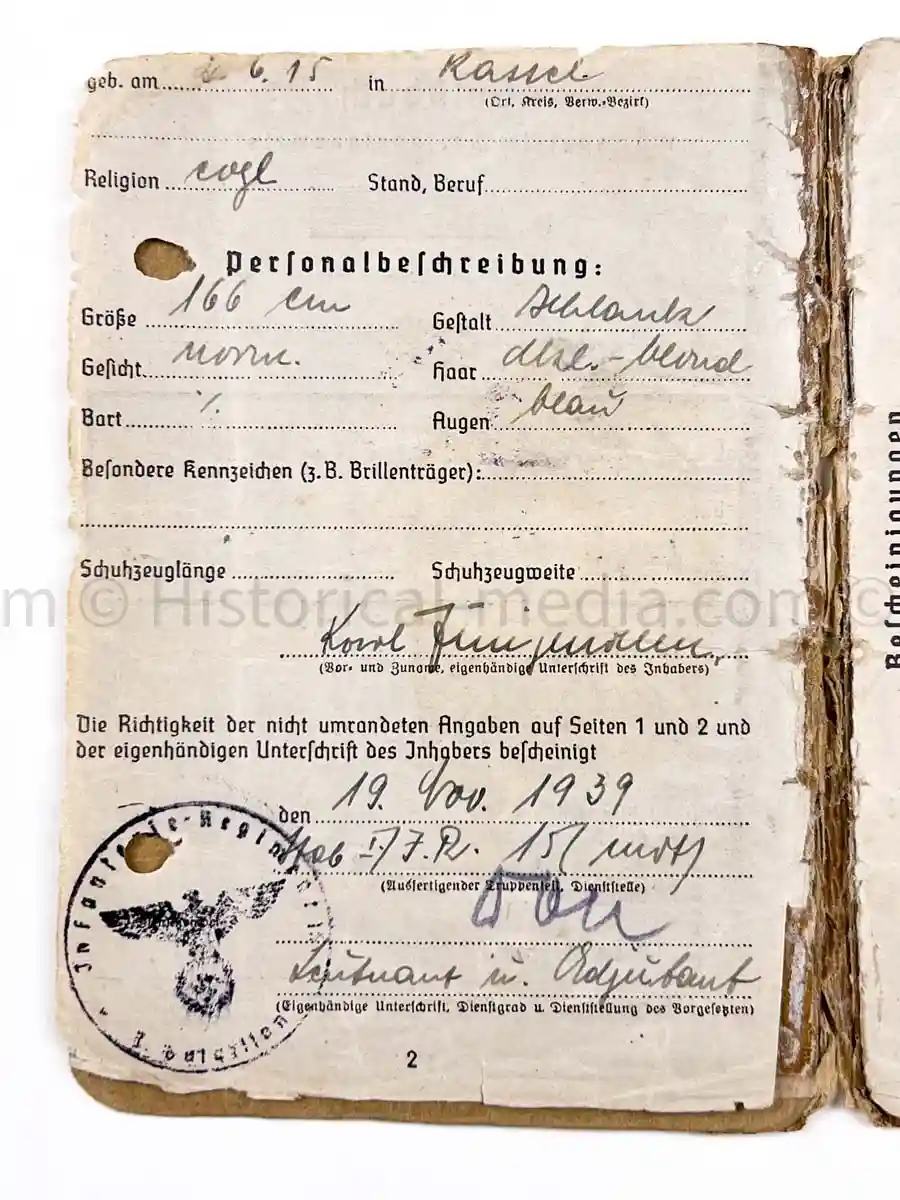 geb. am 6. 15 in Kassel
(Ort, Kreis, Verw.-Bezirk)
Religion evgl Stand, Beruf
Personalbeschreibung:
Größe 166 cm Gestalt schlank
Gesicht norm. Haar dkl.-blond
Bart ⁒ Augen blau
Besondere Kennzeichen (z.B. Brillenträger):
Schuhzeuglänge Schuhzeugweite
© Historical-media.com ©
Karl
(Vor- und Zuname, eigenhändige Unterschrift des Inhabers)
Die Richtigkeit der nicht umrandeten Angaben auf Seiten 1 und 2 und
der eigenhändigen Unterschrift des Inhabers bescheinigt
den 19. Nov. 1939
Stab I./J.R. 15 (mot)
(Ausfertigender Truppenteil, Dienststelle)
Leutnant u. Adjutant
(Eigenhändige Unterschrift, Dienstgrad u. Dienststellung des Vorgesetzten)
Infanterie-Regiment
2
Bescheinigungen